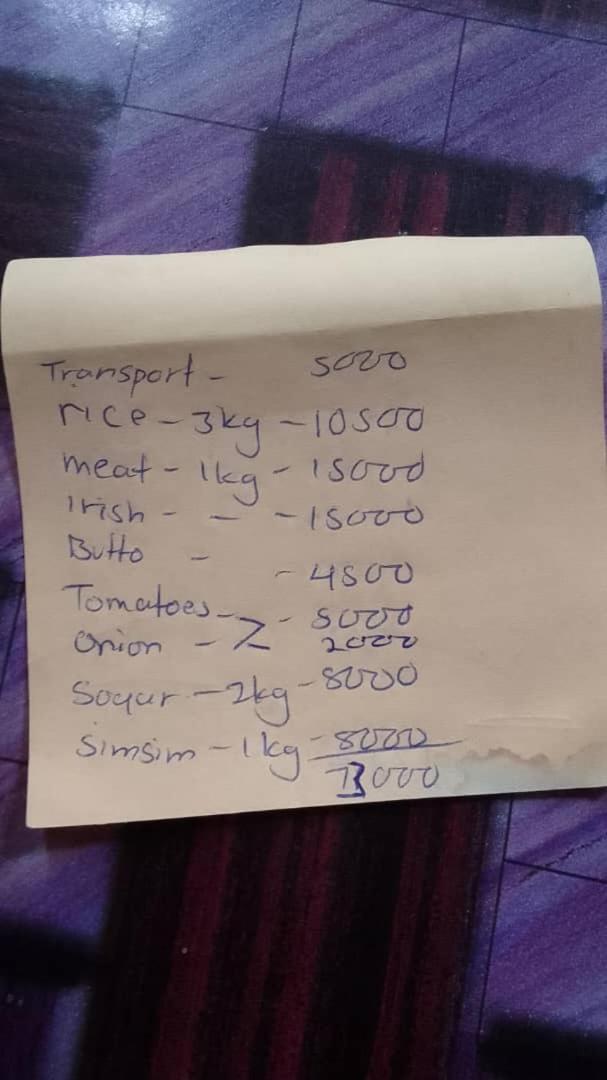 Transport - 5000
rice - 3kg - 10500
meat - 1kg - 15000
Irish - - - 15000
Butto - - 4500
Tomatoes - - 5000
onion - 2000
- 2kg - 8000
Simsim - 1kg - 8000
73000